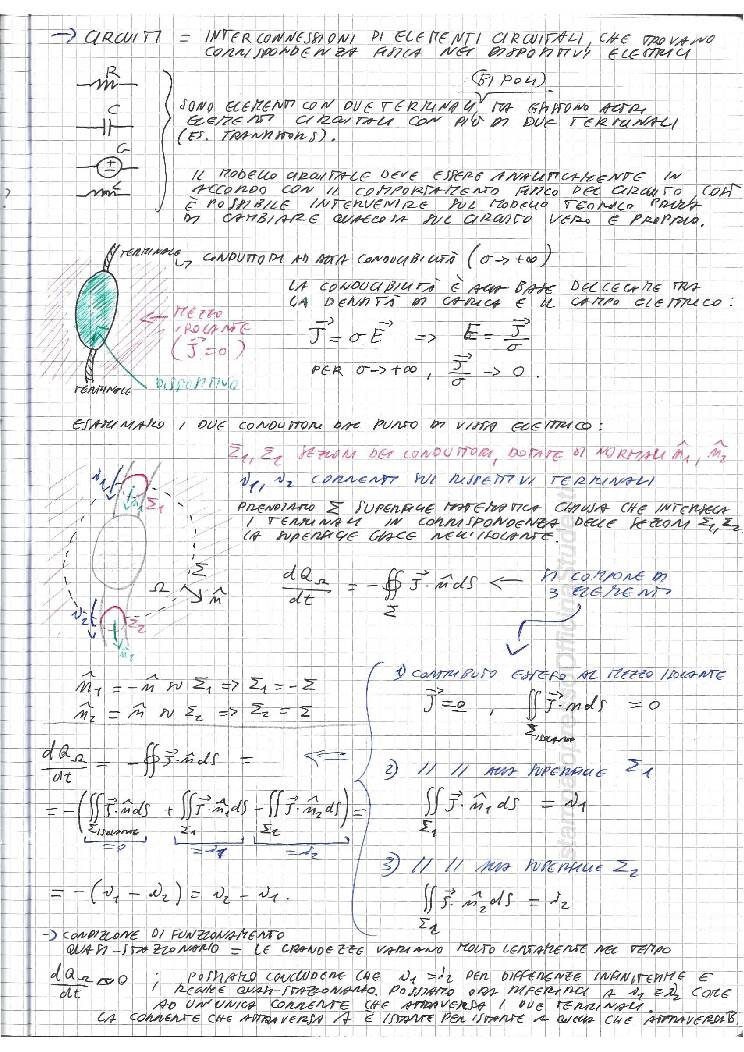 → CIRCUITI = INTERCONNESSIONI DI ELEMENTI CIRCUITALI, CHE TROVANO
CORRISPONDENZA FISICA NEI DISPOSITIVI ELETTRICI
R
C
G
L
(BIPOLI)
SONO ELEMENTI CON DUE TERMINALI, MA ESISTONO ALTRI
ELEMENTI CIRCUITALI CON PIÙ DI DUE TERMINALI
(ES. TRANSISTORS).
IL MODELLO CIRCUITALE DEVE ESSERE ANALITICAMENTE IN
ACCORDO CON IL COMPORTAMENTO FISICO DEL CIRCUITO, COSÌ
È POSSIBILE INTERVENIRE SUL MODELLO TEORICO PRIMA
DI CAMBIARE QUALCOSA SUL CIRCUITO VERO E PROPRIO.
TERMINALE
↳ CONDUTTORI AD ALTA CONDUCIBILITÀ (σ → +∞)
LA CONDUCIBILITÀ È ALLA BASE DEL LEGAME TRA
LA DENSITÀ DI CARICA E IL CAMPO ELETTRICO:
← MEZZO
ISOLANTE
(J⃗=0)
J⃗ = σE⃗ => E = J⃗/σ
PER σ → +∞, J⃗/σ → 0.
DISPOSITIVO
TERMINALE
ESAMINIAMO I DUE CONDUTTORI DAL PUNTO DI VISTA ELETTRICO:
Σ1, Σ2 SEZIONI DEI CONDUTTORI, DOTATE DI NORMALI n̂1, n̂2
i1, i2 CORRENTI SUI RISPETTIVI TERMINALI
PRENDIAMO Σ SUPERFICIE MATEMATICA CHIUSA CHE INTERSECA
I TERMINALI IN CORRISPONDENZA DELLE SEZIONI Σ1, Σ2
LA SUPERFICIE GIACE NELL'ISOLANTE.
i1 n̂1 Σ1
Σ
Ω n̂
i2 Σ2
n̂2
dQΩ/dt = -∯Σ J⃗·n̂ dS ← SI COMPONE DI
3 ELEMENTI
1) CONTRIBUTO ESTESO AL MEZZO ISOLANTE
J⃗=0, ∬Σisolante J⃗·n dS = 0
n̂1 = -n̂ su Σ1 => Σ1 = -Σ
n̂2 = n̂ su Σ2 => Σ2 = Σ
dQΩ/dt = -∯J⃗·n̂ dS = ⇐
2) // // ALLA SUPERFICIE Σ1
∬Σ1 J⃗·n̂1 dS = i1
= -(∬Σisolante J⃗·n̂ dS + ∬Σ1 J⃗·n̂1 dS - ∬Σ2 J⃗·n̂2 dS) =
=0 =i1 =i2
3) // // ALLA SUPERFICIE Σ2
∬Σ2 J⃗·n̂2 dS = i2
= -(i1 - i2) = i2 - i1.
→ CONDIZIONE DI FUNZIONAMENTO
QUASI-STAZIONARIO = LE GRANDEZZE VARIANO MOLTO LENTAMENTE NEL TEMPO
dQΩ/dt ≃ 0 ; POSSIAMO CONCLUDERE CHE i1 = i2 PER DIFFERENZE INFINITESIME E
REGIME QUASI-STAZIONARIO. POSSIAMO ORA RIFERIRCI A i1 E i2 COME
AD UN'UNICA CORRENTE CHE ATTRAVERSA I DUE TERMINALI.
LA CORRENTE CHE ATTRAVERSA A È ISTANTE PER ISTANTE = QUELLA CHE ATTRAVERSA B.